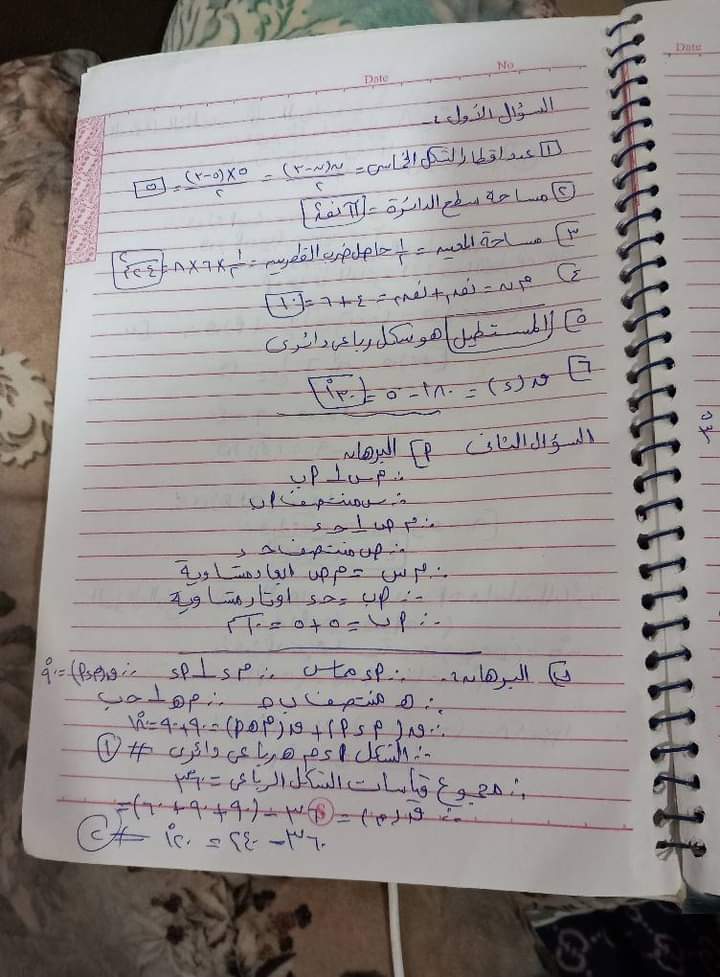 Date
No
Date
السؤال الأول :-
١ عدد اقطار الشكل الخماسى = ن(ن-٣)/٢ = ٥×(٥-٢)/٢ = ٥
٢ مساحة سطح الدائرة = π نق٢
٣ مساحة المعين = ١/٢ حاصل ضرب القطرين = ١/٢ × ٦ × ٨ = ٢٤ سم٢
٤ م ن = نق١ + نق٢ = ٤ + ٦ = ١٠
٥ المستطيل هو شكل رباعى دائرى
٦ ق(د) = ١٨٠ - ٥٠ = ١٣٠°
السؤال الثانى أ البرهان
∵ م س ⊥ أب
∴ س منتصف أب
∵ م ص ⊥ جـ د
∴ ص منتصف جـ د
∵ م س = م ص ابعاد متساوية
∴ أب = جـ د اوتار متساوية
∴ أب = ٥ + ٥ = ١٠
ب البرهان :- ∵ أد مماس ∴ م د ⊥ أد ∴ ق(م د أ) = ٩٠°
∵ هـ منتصف ب جـ ∴ م هـ ⊥ جـ ب
∴ ق(م د أ) + ق(م هـ أ) = ٩٠ + ٩٠ = ١٨٠°
∴ الشكل أ د م هـ رباعى دائرى # ١
∵ مجموع قياسات الشكل الرباعى = ٣٦٠
∴ ق(م) = ٣٦٠ - (٩٠ + ٩٠ + ٦٠) =
٣٦٠ - ٢٤٠ = ١٢٠° # ٢